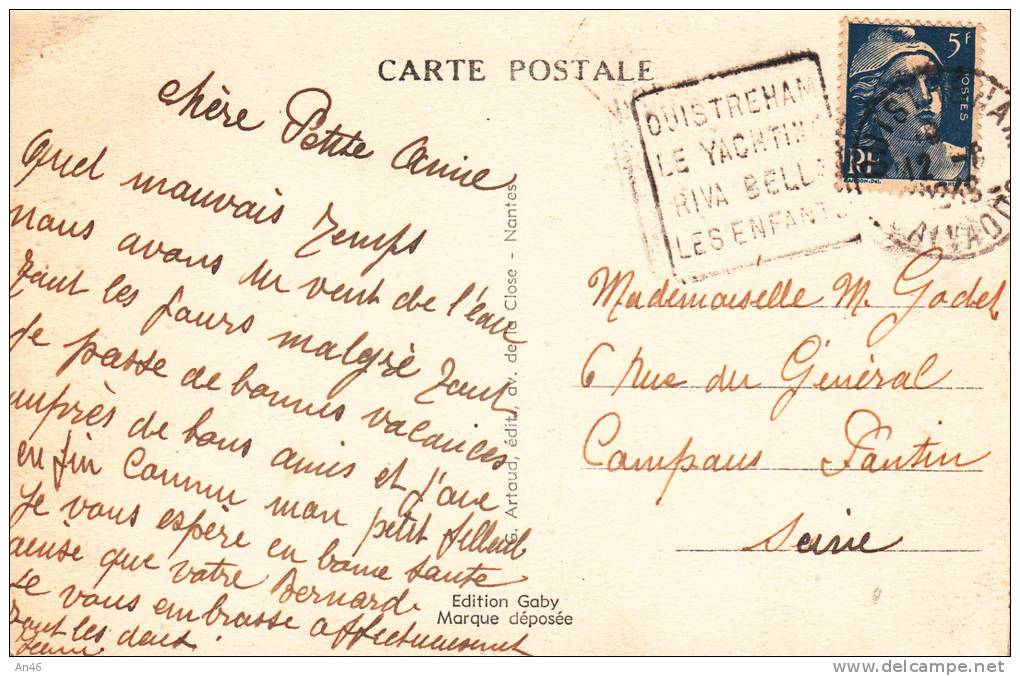 CARTE POSTALE
chère Petite Amie
Quel mauvais temps
nous avons du vent de l'eau
tout les jours malgré tout
je passe de bonnes vacances
auprès de bons amis et j'ai
enfin connu mon petit filleul
Je vous espère en bonne santé
ainsi que votre Bernard
Je vous embrasse affectueusement
tout les deux
G. Artaud, édit., av. de la Close - Nantes
Edition Gaby
Marque déposée
OUISTREHAM
LE YACHTING
RIVA BELLA
LES ENFANTS
5F
POSTES
RF
12 -8
CALVADOS
Mademoiselle M. Godet
6 rue du Général
Compans Pantin
Seine
An46
delcampe.net